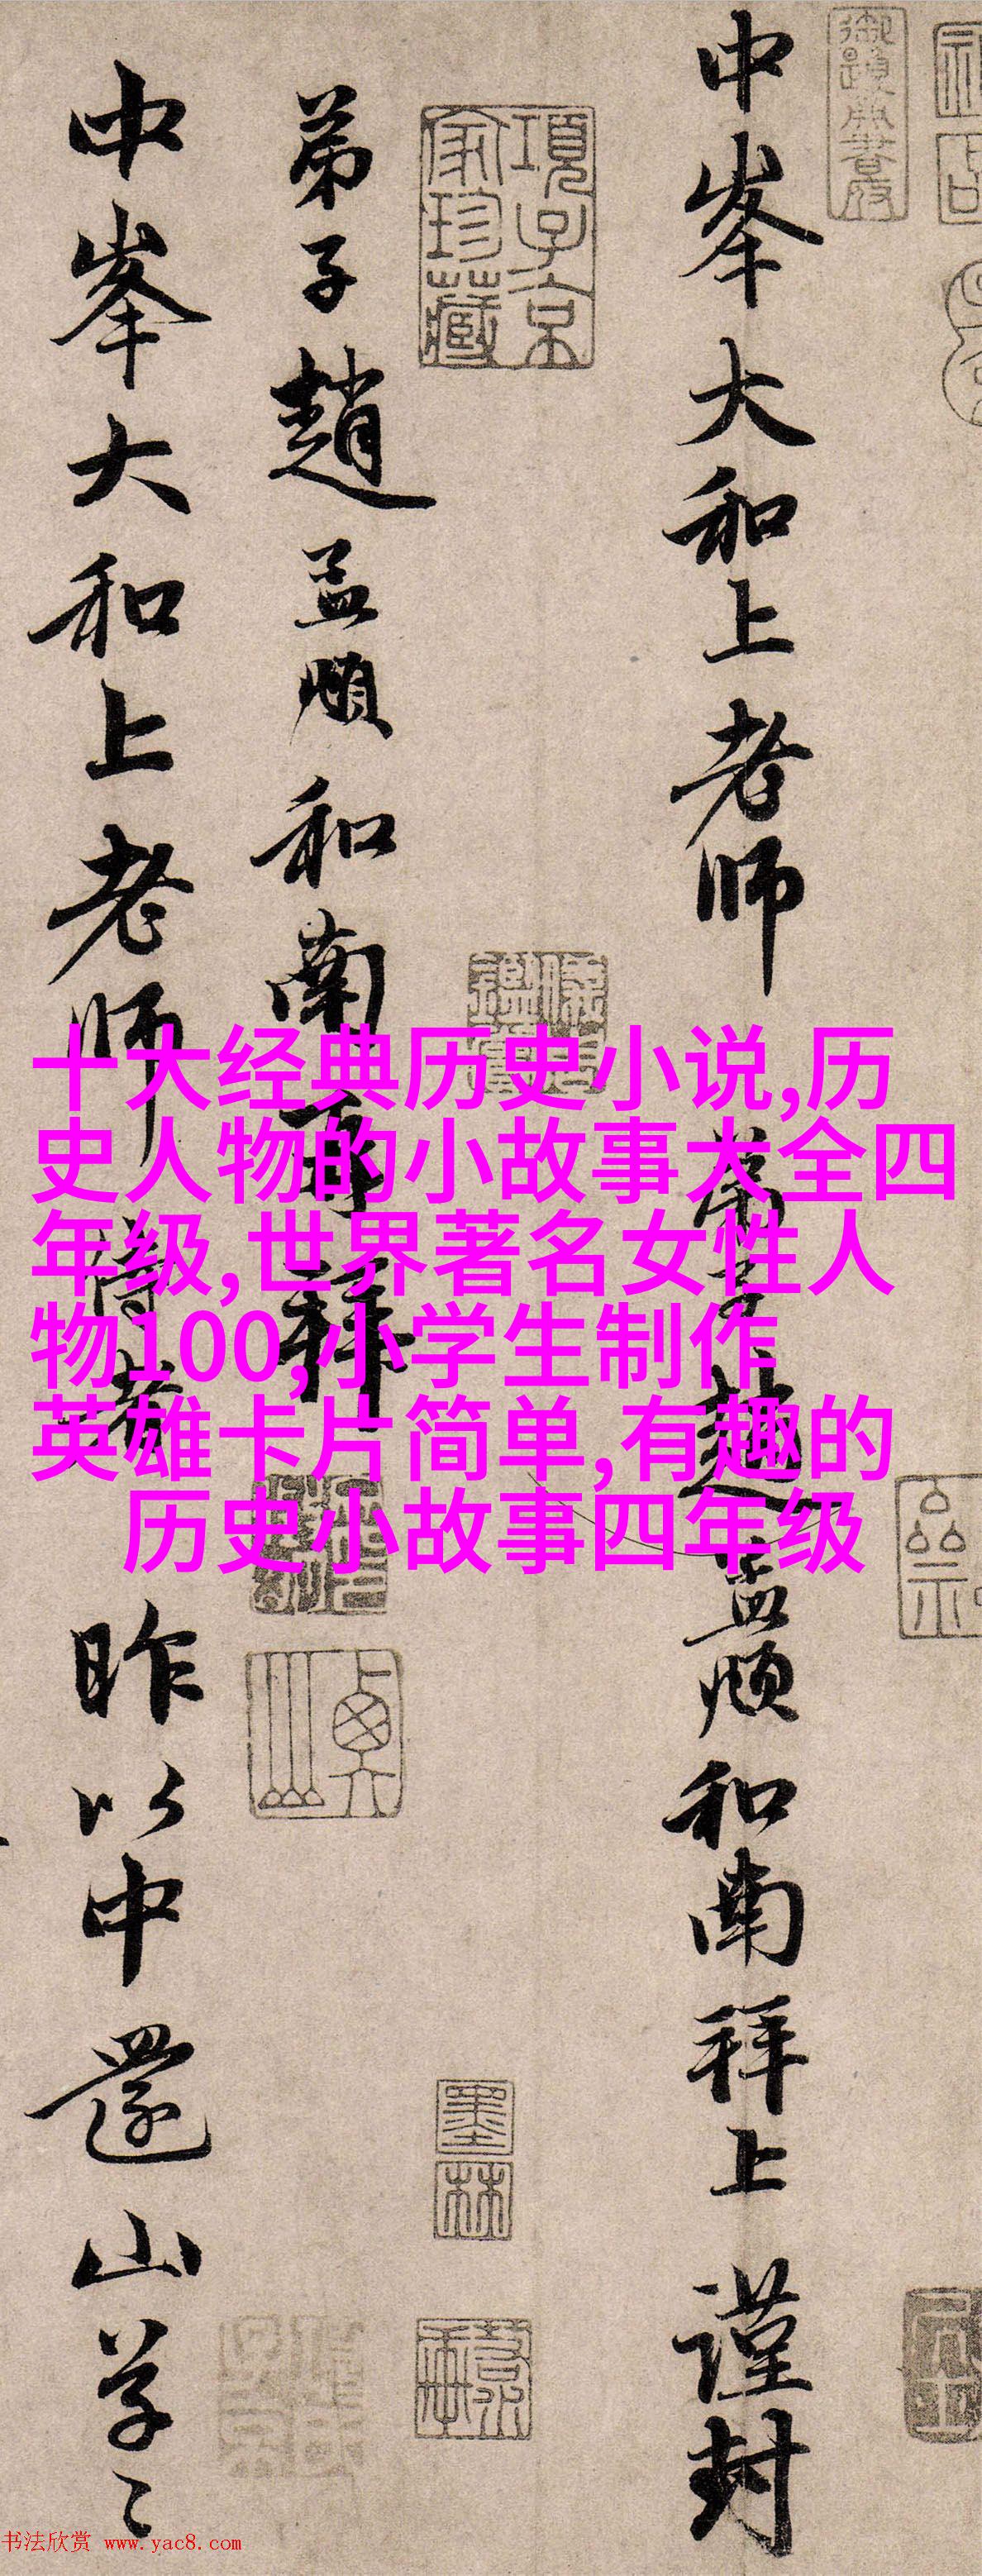 中峯大和上老師
弟子趙孟頫和南拜上謹封
項子京
家珍藏
墨林
弟子趙孟頫和南再拜
中峯大和上老師侍者
昨以中還山草々
十大经典历史小说,历
史人物的小故事大全四
年级,世界著名女性人
物100,小学生制作
英雄卡片简单,有趣的
历史小故事四年级
书法欣赏 www.yac8.com